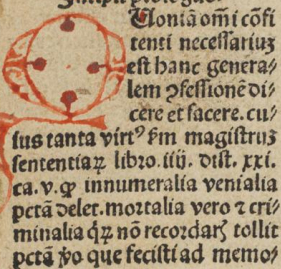 Quoniã om̃i cõfi
tenti necessariuʒ
est hanc genera⸗
lem ꝯfessionẽ di⸗
cere et facere. cu⸗
ius tanta virtꝰ ẜm magistruʒ
sententiaꝝ libro. iiij. dist. xxi.
ca. v. ꝙ innumeralia venialia
pctã delet. mortalia vero ⁊ cri⸗
minalia q̃ꝝ nõ recordarꝭ tollit
pctã ỹo que fecisti ad memo⸗